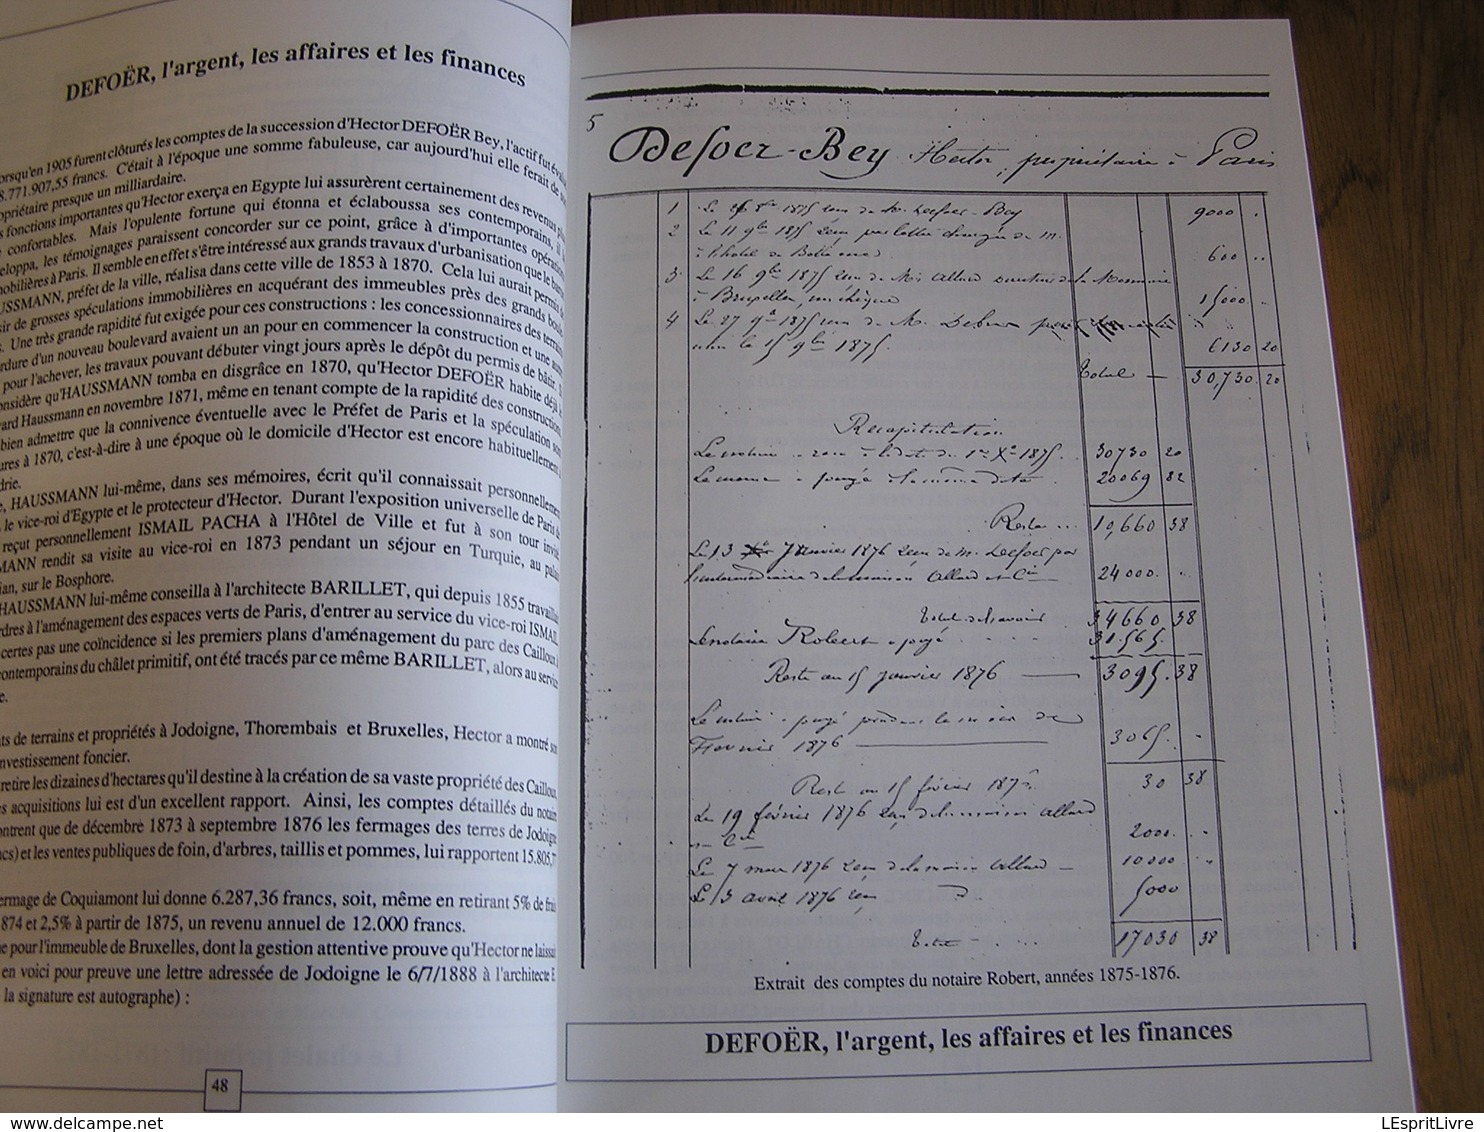 DEFOËR, l'argent, les affaires et les finances
orsqu'en 1905 furent clôturés les comptes de la succession d'Hector DEFOËR Bey, l'actif fut
8.771.907,55 francs. C'était à l'époque une somme fabuleuse, car aujourd'hui elle ferait de
opriétaire presque un milliardaire.
s fonctions importantes qu'Hector exerça en Egypte lui assurèrent certainement des revenus
confortables. Mais l'opulente fortune qui étonna et éclaboussa ses contemporains, il
eloppa, les témoignages paraissent concorder sur ce point, grâce à d'importantes opérations
mobilières à Paris. Il semble en effet s'être intéressé aux grands travaux d'urbanisation que le
USSMANN, préfet de la ville, réalisa dans cette ville de 1853 à 1870. Cela lui aurait permis
ir de grosses spéculations immobilières en acquérant des immeubles près des grands
s. Une très grande rapidité fut exigée pour ces constructions : les concessionnaires des terrains
rdure d'un nouveau boulevard avaient un an pour en commencer la construction et une
pour l'achever, les travaux pouvant débuter vingt jours après le dépôt du permis de bâtir.
onsidère qu'HAUSSMANN tomba en disgrâce en 1870, qu'Hector DEFOËR habite déjà
vard Haussmann en novembre 1871, même en tenant compte de la rapidité des constructions
bien admettre que la connivence éventuelle avec le Préfet de Paris et la spéculation
ures à 1870, c'est-à-dire à une époque où le domicile d'Hector est encore habituellement
drie.
e, HAUSSMANN lui-même, dans ses mémoires, écrit qu'il connaissait personnellement
le vice-roi d'Egypte et le protecteur d'Hector. Durant l'exposition universelle de Paris
reçut personnellement ISMAIL PACHA à l'Hôtel de Ville et fut à son tour invité
MANN rendit sa visite au vice-roi en 1873 pendant un séjour en Turquie, au palais
ian, sur le Bosphore.
HAUSSMANN lui-même conseilla à l'architecte BARILLET, qui depuis 1855 travaillait
rdres à l'aménagement des espaces verts de Paris, d'entrer au service du vice-roi ISMAIL
certes pas une coïncidence si les premiers plans d'aménagement du parc des Cailloux
contemporains du châlet primitif, ont été tracés par ce même BARILLET, alors au service
e.
ts de terrains et propriétés à Jodoigne, Thorembais et Bruxelles, Hector a montré son
nvestissement foncier.
retire les dizaines d'hectares qu'il destine à la création de sa vaste propriété des Cailloux
es acquisitions lui est d'un excellent rapport. Ainsi, les comptes détaillés du notaire
ontrent que de décembre 1873 à septembre 1876 les fermages des terres de Jodoigne
ncs) et les ventes publiques de foin, d'arbres, taillis et pommes, lui rapportent 15.805,7
ermage de Coquiamont lui donne 6.287,36 francs, soit, même en retirant 5% de frais
874 et 2,5% à partir de 1875, un revenu annuel de 12.000 francs.
e pour l'immeuble de Bruxelles, dont la gestion attentive prouve qu'Hector ne laissait
en voici pour preuve une lettre adressée de Jodoigne le 6/7/1888 à l'architecte E.
la signature est autographe) :
48
5
Defoer-Bey Hector, propriétaire à Paris
1 9000
2 Le 11 9bre 1875 reçu par lettre chargée de M.
à l'hotel de Bohême 600
3 Le 16 9bre 1875 reçu de Mr Allard directeur de la Monnaie
à Bruxelles, un chèque 15000
4 Le 27 9bre 1875 reçu de M.
le 15 9bre 1875. 6130 20
Total 30,730 20
Recapitulation
Le notaire a reçu à la date du 1er Xbre 1875. 30730 20
Le même a payé à la même date 20069 82
Reste 10,660 38
Le 13 Janvier 1876 reçu de M. Defoer par
l'intermédiaire de la maison Allard et Cie 24000
Total de l'avoir 34660 38
Le notaire Robert a payé 31.565
Reste au 15 janvier 1876 3095. 38
Le notaire a payé pendant le mois de
Fevrier 1876 3065
Reste au 15 février 187 30 38
Le 19 février 1876 reçu de la maison Allard
et Cie 2000
Le 7 mars 1876 reçu de la maison Allard 10000
Le 3 avril 1876 reçu 5000
Total 17030 38
Extrait des comptes du notaire Robert, années 1875-1876.
DEFOËR, l'argent, les affaires et les finances
www.delcampe.net
LEspritLivre